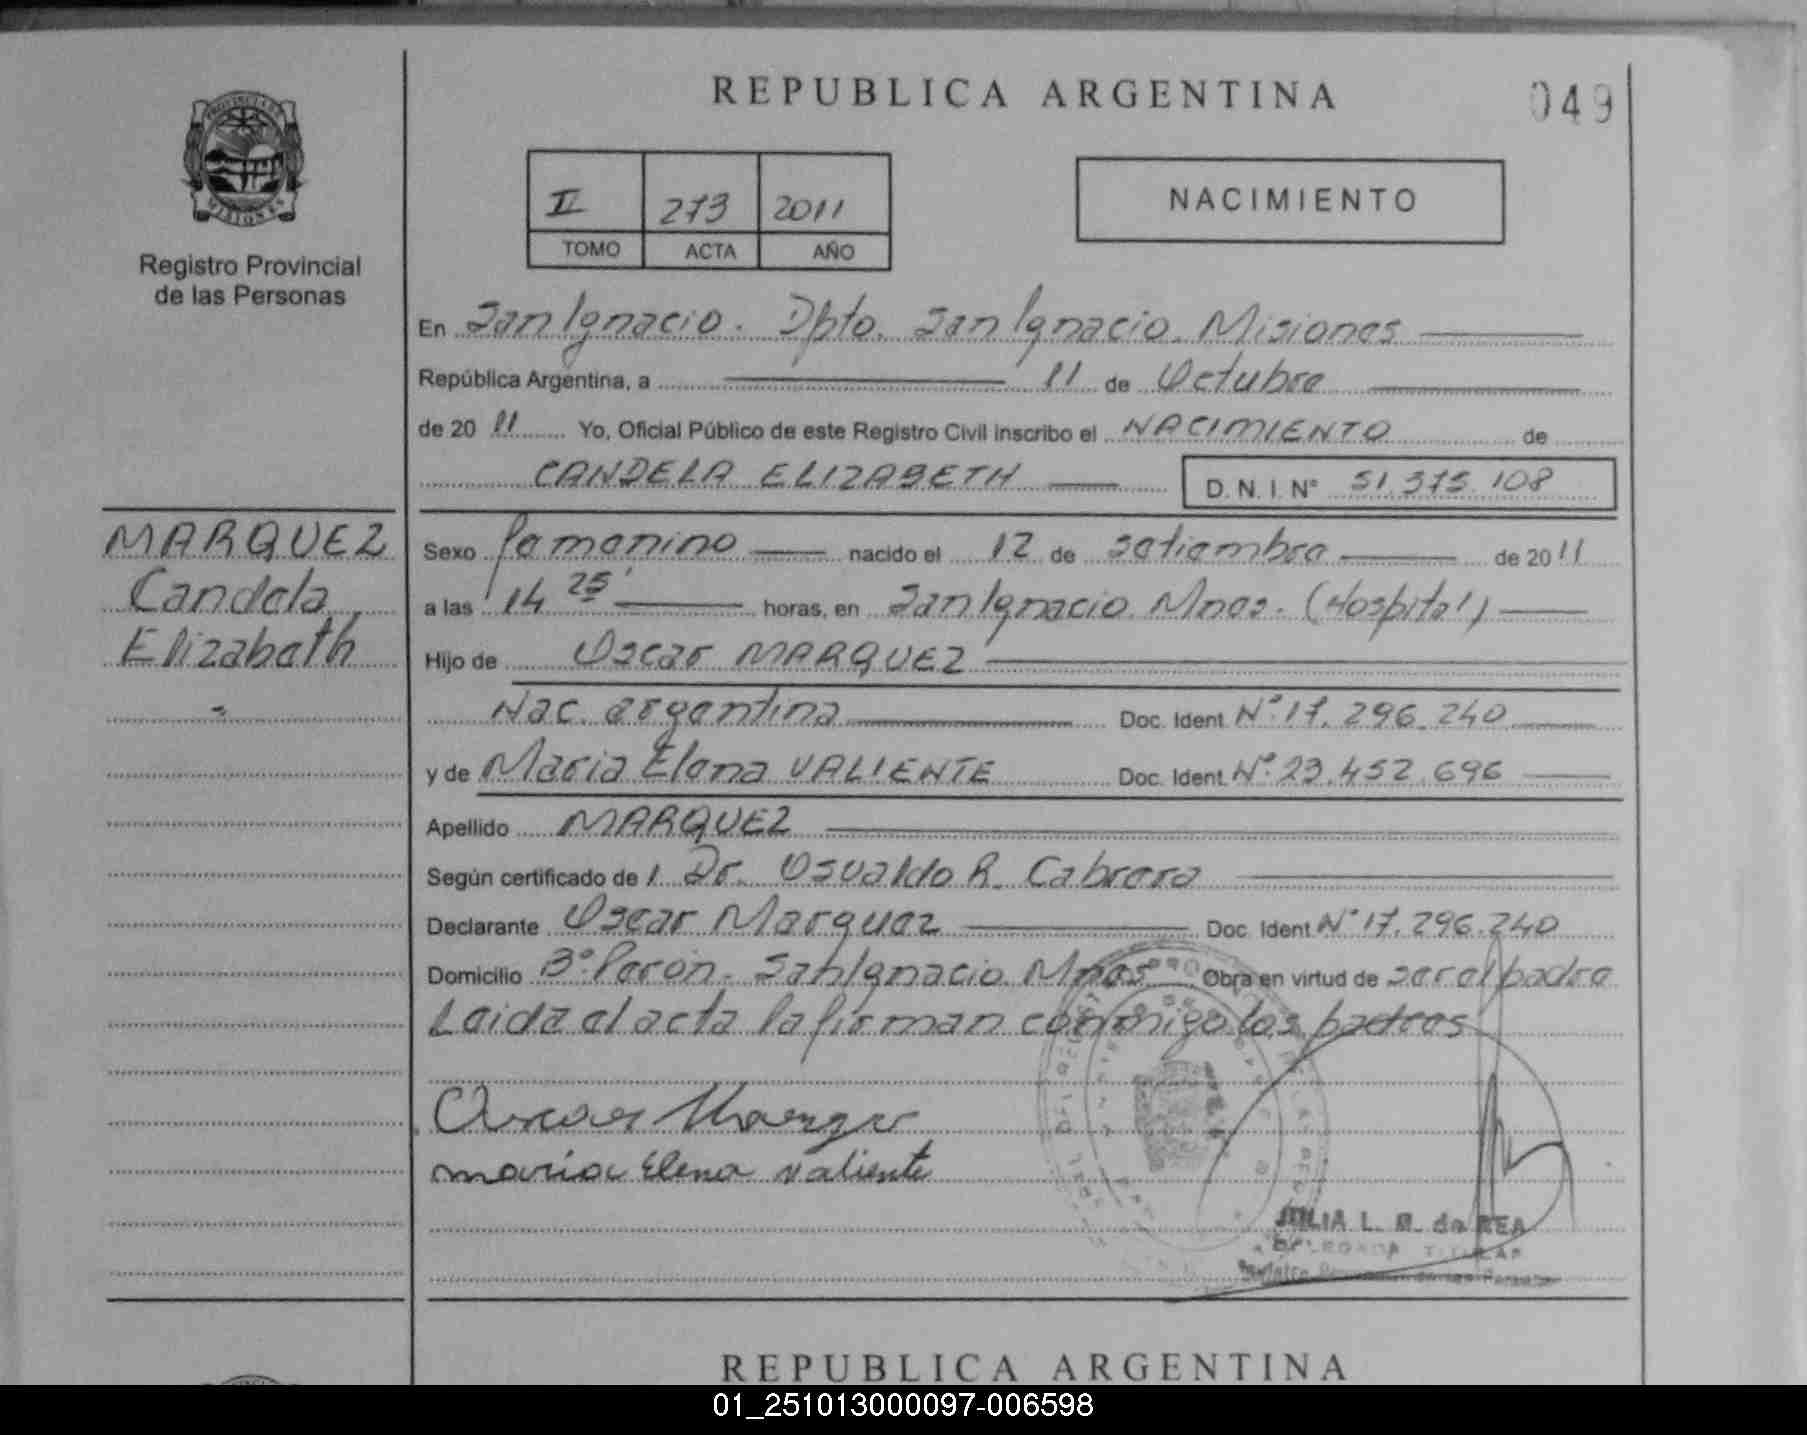 REPUBLICA ARGENTINA
049
PROVINCIA DE MISIONES
Registro Provincial
de las Personas
II 273 2011
TOMO ACTA AÑO
NACIMIENTO
En San Ignacio. Dpto. San Ignacio. Misiones
República Argentina, a 11 de Octubre
de 20 11 Yo, Oficial Público de este Registro Civil inscribo el NACIMIENTO de
CANDELA ELIZABETH D. N. I. N° 51.375.108
MARQUEZ
Candela
Elizabeth
Sexo femenino nacido el 12 de setiembre de 2011
a las 14 25' horas, en San Ignacio. Mnes. (Hospital)
Hijo de Oscar MARQUEZ
Nac. argentina Doc. Ident. N° 17.296.240
y de Maria Elena VALIENTE Doc. Ident. N° 23.452.696
Apellido MARQUEZ
Según certificado de l Dr. Osvaldo R. Cabrera
Declarante Oscar Marquez Doc. Ident N° 17.296.240
Domicilio B° Perón. San Ignacio. Mnes Obra en virtud de ser el padre
Leida el acta la firman conmigo los padres
Oscar Marquez
maria Elena valiente
JULIA L. de REA
DELEGADA TITULAR
REPUBLICA ARGENTINA
01_251013000097-006598